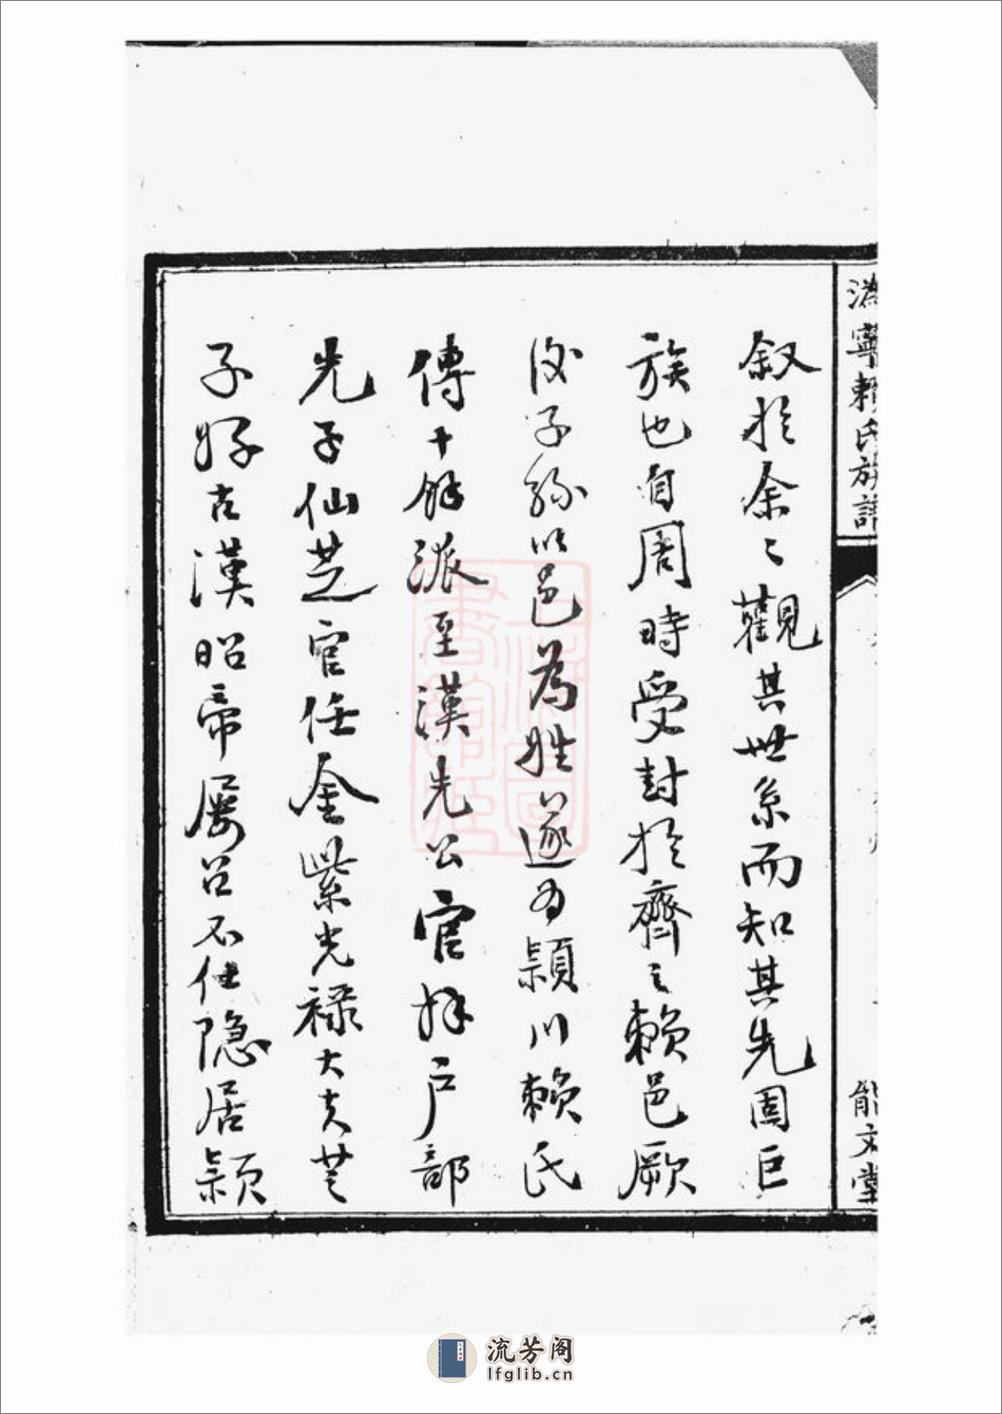 溈寧賴氏族譜
能文堂
叙於余〻觀其世系而知其先固巨
族也自周時受封於齊之賴邑厥
後子孫以邑為姓遂為潁川賴氏
傳十餘派至漢先公官拜户部
先子仙芝官任金紫光禄大夫芝
子好古漢昭帝屡召不仕隐居潁
流芳阁
lfglib.cn